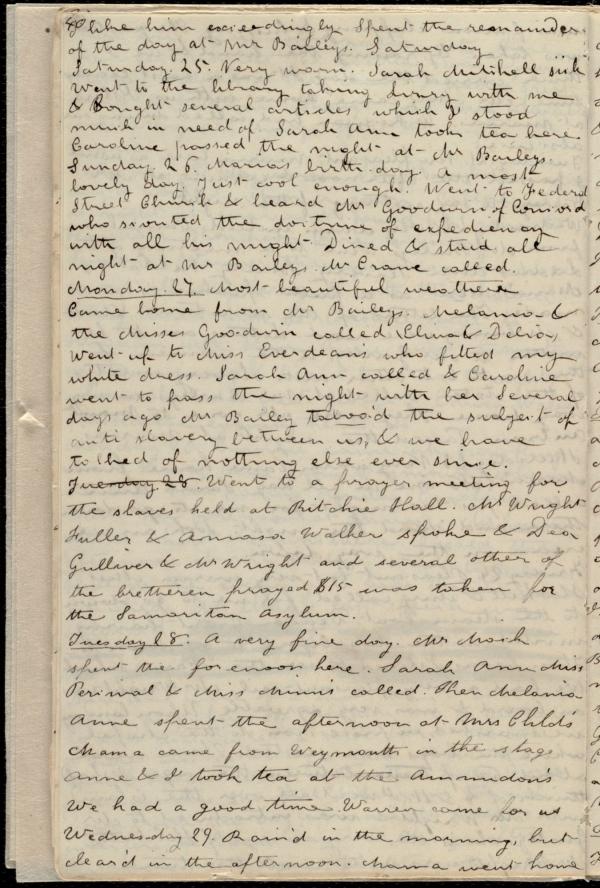 80
I like him exceedingly Spent the remainder
of the day at Mr Baileys. Saturday
Saturday. 25. Very warm. Sarah Mitchell sick
Went to the library taking Henry with me
& Bought several articles which I stood
much in need of Sarah Ann took tea here.
Caroline passed the night at Mr Baileys.
Sunday 26. Maria's birth day. A most
lovely day. Just cool enough. Went to Federal
Street Church & heard Mr Goodwin of Concord
who scouted the doctrine of expediency
with all his might Dined & staid all
night at Mr Baileys. Mr Crane called.
Monday. 27. Most beautiful weather
Came home from Mr Baileys. Melania &
the Misses Goodwin called (Eliva & Delia)
Went up to Miss Everdeans who fitted my
white dress. Sarah Ann called & Caroline
went to pass the night with her Several
days ago Mr Bailey tabood the subject of
anti slavery between us, & we have
talked of nothing else ever since.
Tuesday 28. Went to a prayer meeting for
the slaves held at Ritchie Hall. Mr Wright
Fuller & Amasa Walker spoke & Dea
Gulliver & Mr Wright and several other of
the bretheren prayed $15 was taken for
the Samaritan Asylum.
Tuesday 28. A very fine day. Mr Mack
spent the forenoon here. Sarah Ann Miss
Perival & Miss Minns called. Then Melania
Anne spent the afternoon at Mrs Child's
Mama came from Weymouth in the stage
Anne & I took tea at the Ammidon's
We had a good time Warren came for us
Wednesday 29. Rain'd in the morning, but
clear'd in the afternoon. Mama went home